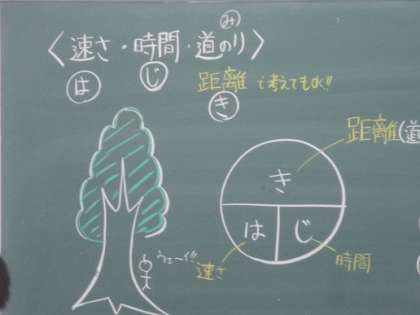 み
〈速さ・時間・道のり〉
は じ 距離で考えてもOK!!
き
距離(道
き
は じ
ウェーイ!!
速さ
時間